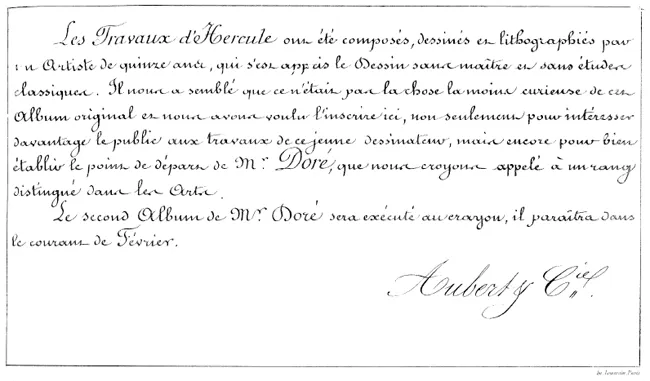 Les Travaux d'Hercule ont été composés, dessinés et lithographiés par
un Artiste de quinze ans, qui s'est appris le Dessin sans maître et sans études
classiques. Il nous a semblé que ce n'était pas la chose la moins curieuse de cet
Album original et nous avons voulu l'inscrire ici, non seulement pour intéresser
davantage le public aux travaux de ce jeune dessinateur, mais encore pour bien
établir le point de départ de Mr. Doré, que nous croyons appelé à un rang
distingué dans les Arts.
Le second Album de Mr. Doré sera exécuté au crayon, il paraîtra dans
le courant de Février.
Aubert & Cie.